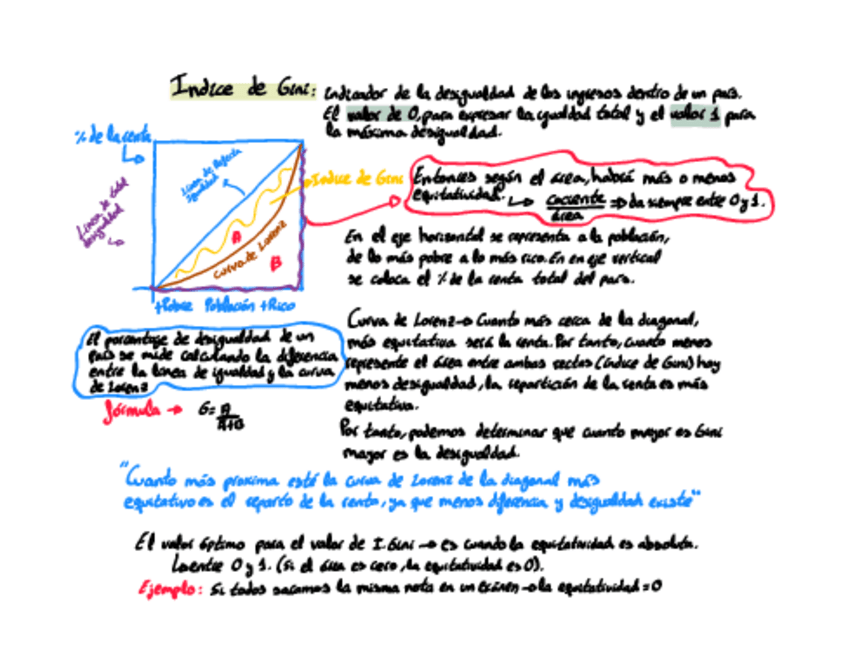 Indice de Gini: Indicador de la desigualdad de los ingresos dentro de un país.
El valor de 0, para expresar la igualdad total y el valor 1 para
la máxima desigualdad.
% de la renta
Linea de total
desigualdad
Linea de Perfecta
igualdad
Indice de Gini
A
Curva de Lorenz
B
+Pobre Población +Rico
Entonces según el área, habrá más o menos
equitatividad. cociente
área
⇒ da siempre entre 0 y 1.
En el eje horizontal se representa a la población,
de lo más pobre a lo más rico. En en eje vertical
se coloca el % de la renta total del país.
El porcentaje de desigualdad de un
país se mide calculando la diferencia
entre la linea de igualdad y la curva
de Lorenz
fórmula → G= A
A+B
Curva de Lorenz → Cuanto más cerca de la diagonal,
más equitativa será la renta. Por tanto, cuanto menos
represente el área entre ambas rectas (índice de Gini) hay
menos desigualdad, la repartición de la renta es más
equitativa.
Por tanto, podemos determinar que cuanto mayor es Gini
mayor es la desigualdad.
"Cuanto más proxima esté la curva de Lorenz de la diagonal más
equitativo es el reparto de la renta, ya que menos diferencia y desigualdad existe"
El valor óptimo para el valor de I.Gini → es cuando la equitatividad es absoluta.
entre 0 y 1. (Si el área es cero, la equitatividad es 0).
Ejemplo: Si todos sacamos la misma nota en un exámen → la equitatividad = 0